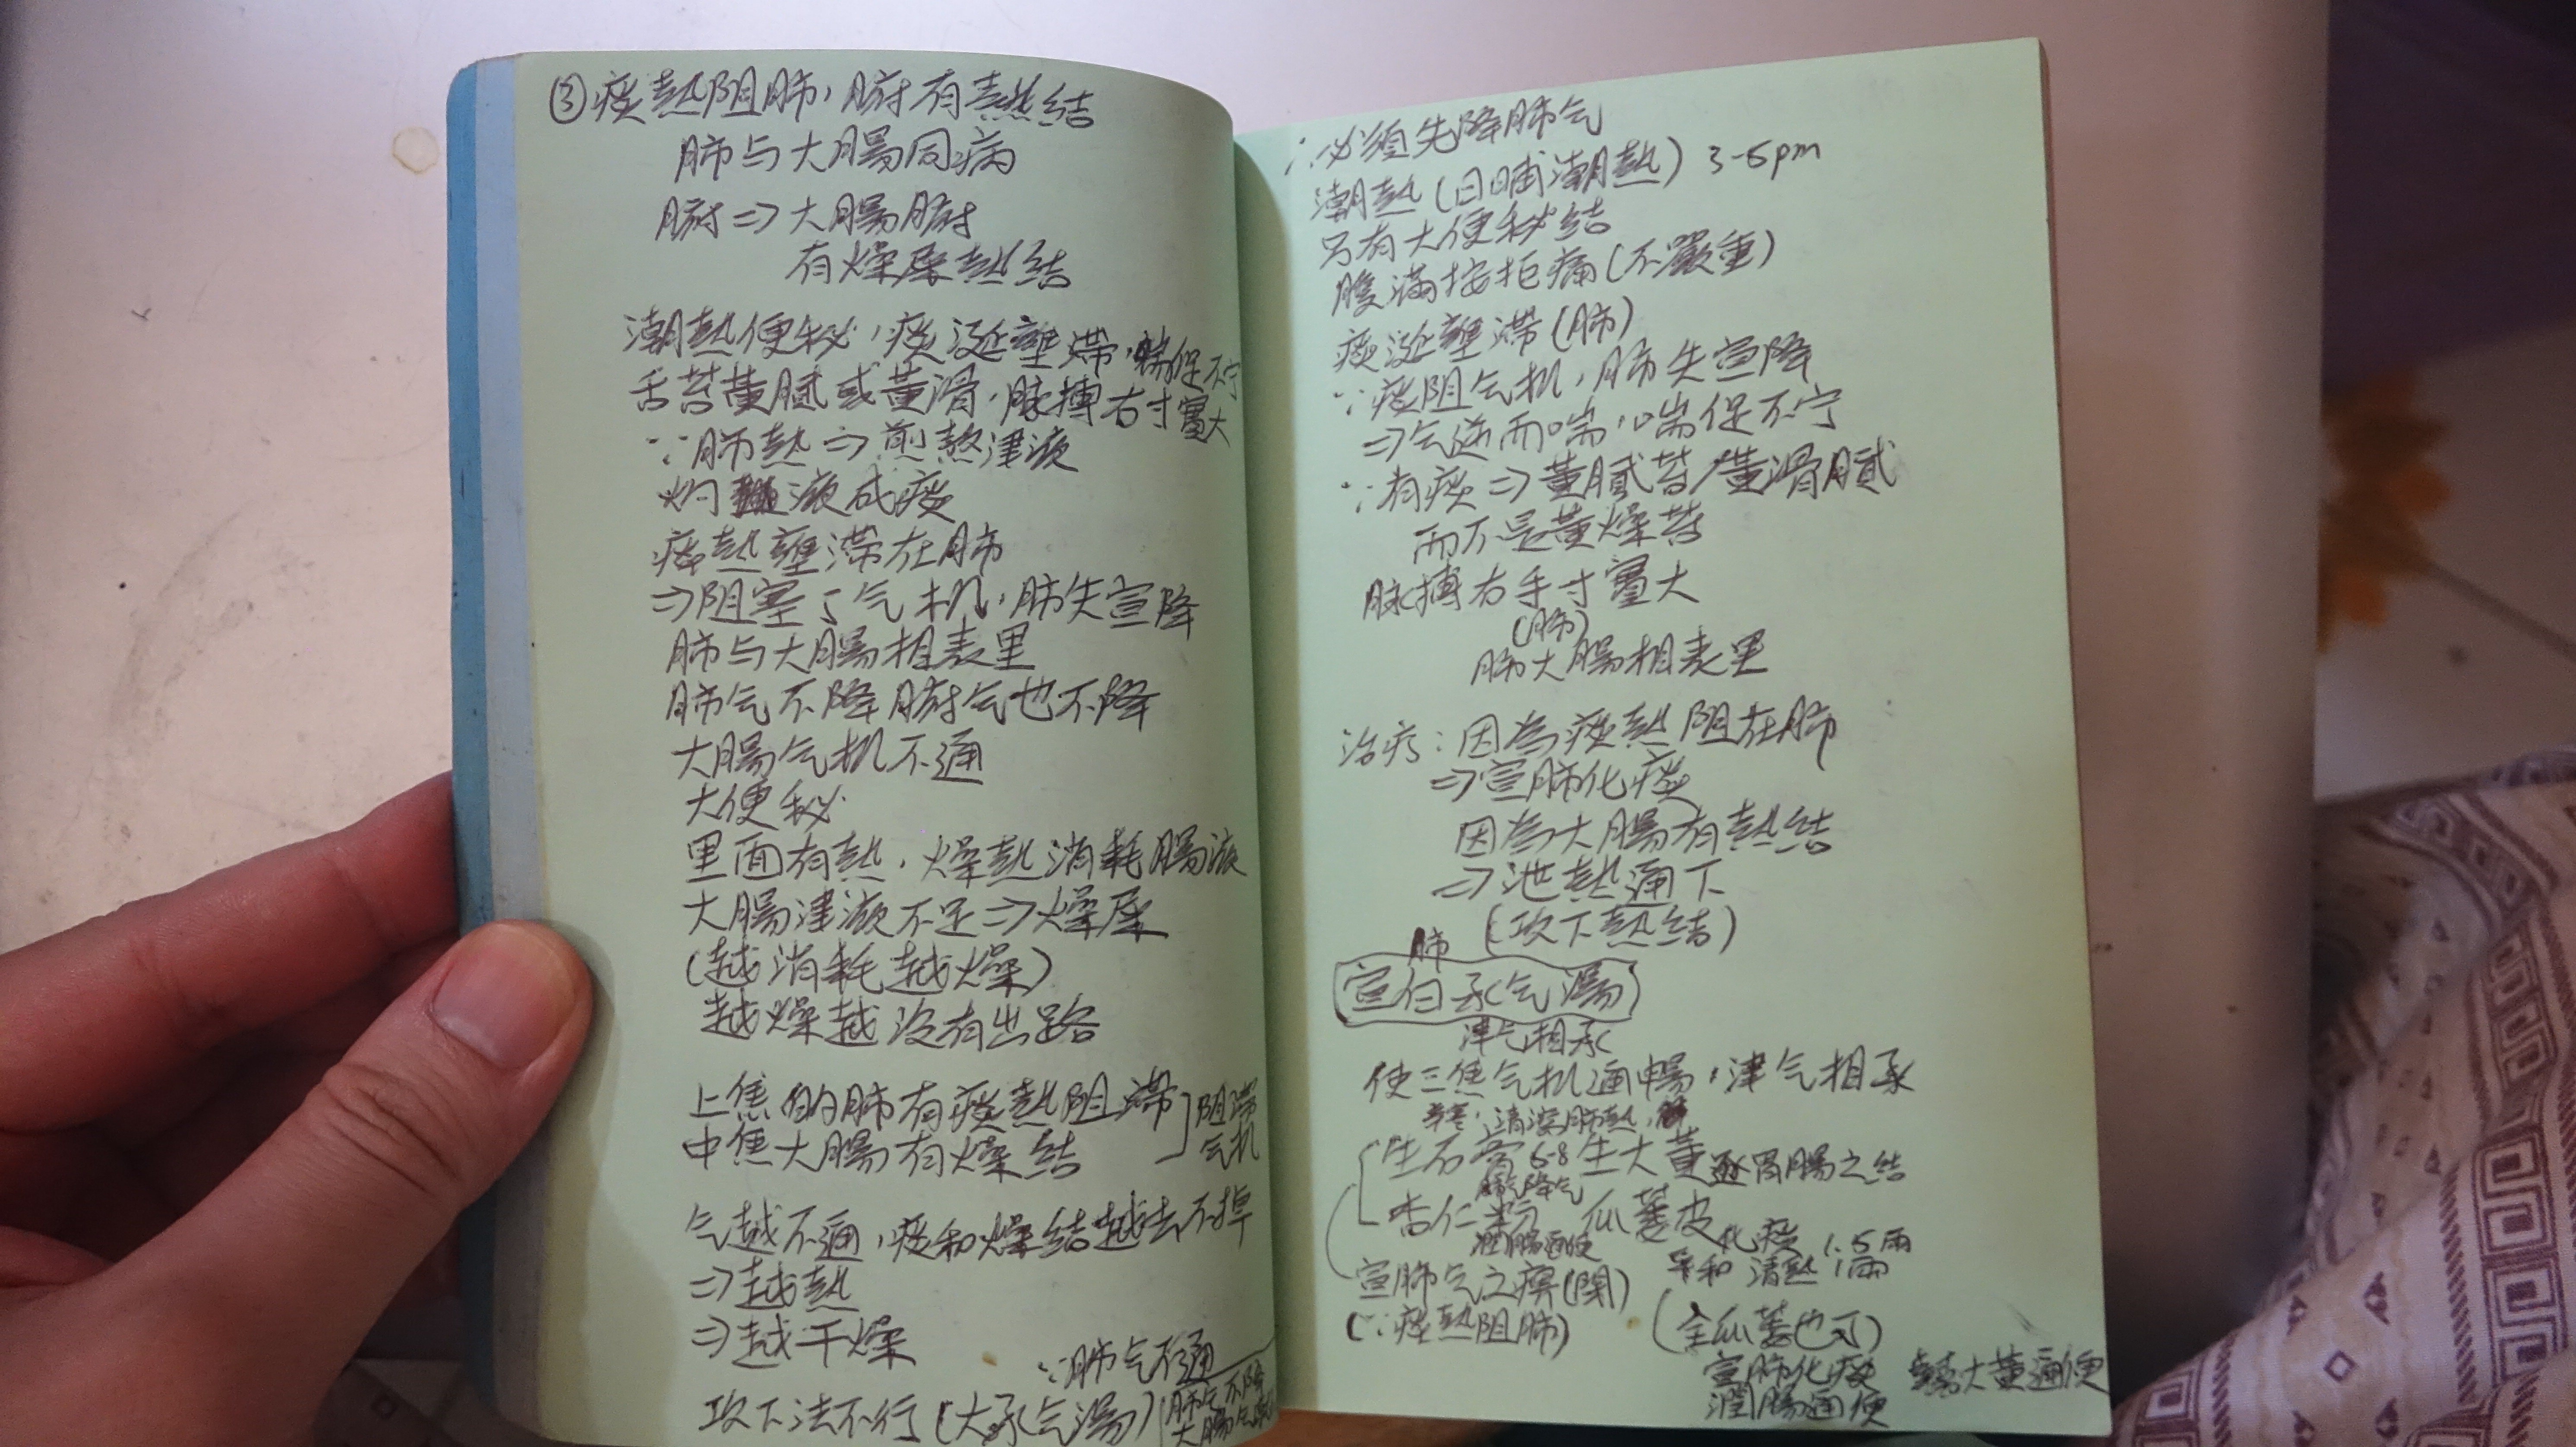 ③痰熱阻肺，腑有熱結
肺与大腸同病
腑⇒大腸腑
有燥屎熱結
潮熱便秘，痰涎壅滞，喘促不宁
舌苔黄腻或黄滑，脉搏右寸實大
∵肺熱⇒煎熬津液
灼液成痰
痰熱壅滞在肺
⇒阻塞了气机，肺失宣降
肺与大腸相表里
肺气不降腑气也不降
大腸气机不通
大便秘
里面有熱，燥熱消耗腸液
大腸津液不足⇒燥屎
(越消耗越燥)
越燥越没有出路
上焦的肺有痰熱阻滞
中焦大腸有燥結
阻滞
气机
气越不通，痰和燥結越去不掉
⇒越熱
⇒越干燥
∵肺气不通
攻下法不行(大承气湯)
肺气不降
大腸气
∴必須先降肺气
潮熱(日晡潮熱) 3-5pm
只有大便秘結
腹滿按拒痛(不嚴重)
痰涎壅滞(肺)
∵痰阻气机，肺失宣降
⇒气逆而喘，喘促不宁
∵有痰⇒黄腻苔/黄滑腻
而不是黄燥苔
脉搏右手寸實大
(肺)
肺大腸相表里
治疗：因為痰熱阻在肺
⇒宣肺化痰
因為大腸有熱結
⇒泄熱通下
(攻下熱結)
肺
宣白承气湯
津气相承
使三焦气机通暢，津气相承
辛寒，清瀉肺熱，
生石膏 6-8 生大黄 逐胃腸之結
降气
杏仁粉 瓜蒌皮
潤腸通便 化痰 1.5兩
宣肺气之痹(閉) 清熱 1兩
(∵痰熱阻肺) (全瓜蒌也可)
宣肺化痰 大黄通便
潤腸通便